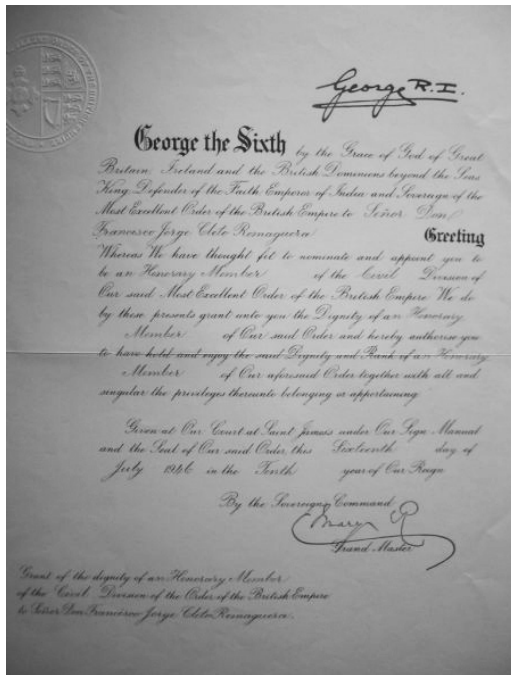 George R.I.
George the Sixth by the Grace of God of Great
Britain, Ireland and the British Dominions beyond the Seas
King, Defender of the Faith, Emperor of India and Sovereign of the
Most Excellent Order of the British Empire to Señor Don
Francesco Jorge Cleto Romaguera Greeting
Whereas We have thought fit to nominate and appoint you to
be an Honorary Member of the Civil Division of
Our said Most Excellent Order of the British Empire We do
by these presents grant unto you the Dignity of an Honorary
Member of Our said Order and hereby authorise you
to have hold and enjoy the said Dignity and Rank of an Honorary
Member of Our aforesaid Order together with all and
singular the privileges thereunto belonging or appertaining.
Given at Our Court at Saint James's under Our Sign Manual
and the Seal of Our said Order, this Sixteenth day of
July 1946 in the Tenth year of Our Reign
By the Sovereign's Command.
Mary R
Grand Master
Grant of the dignity of an Honorary Member
of the Civil Division of the Order of the British Empire
to Señor Don Francesco Jorge Cleto Romaguera.